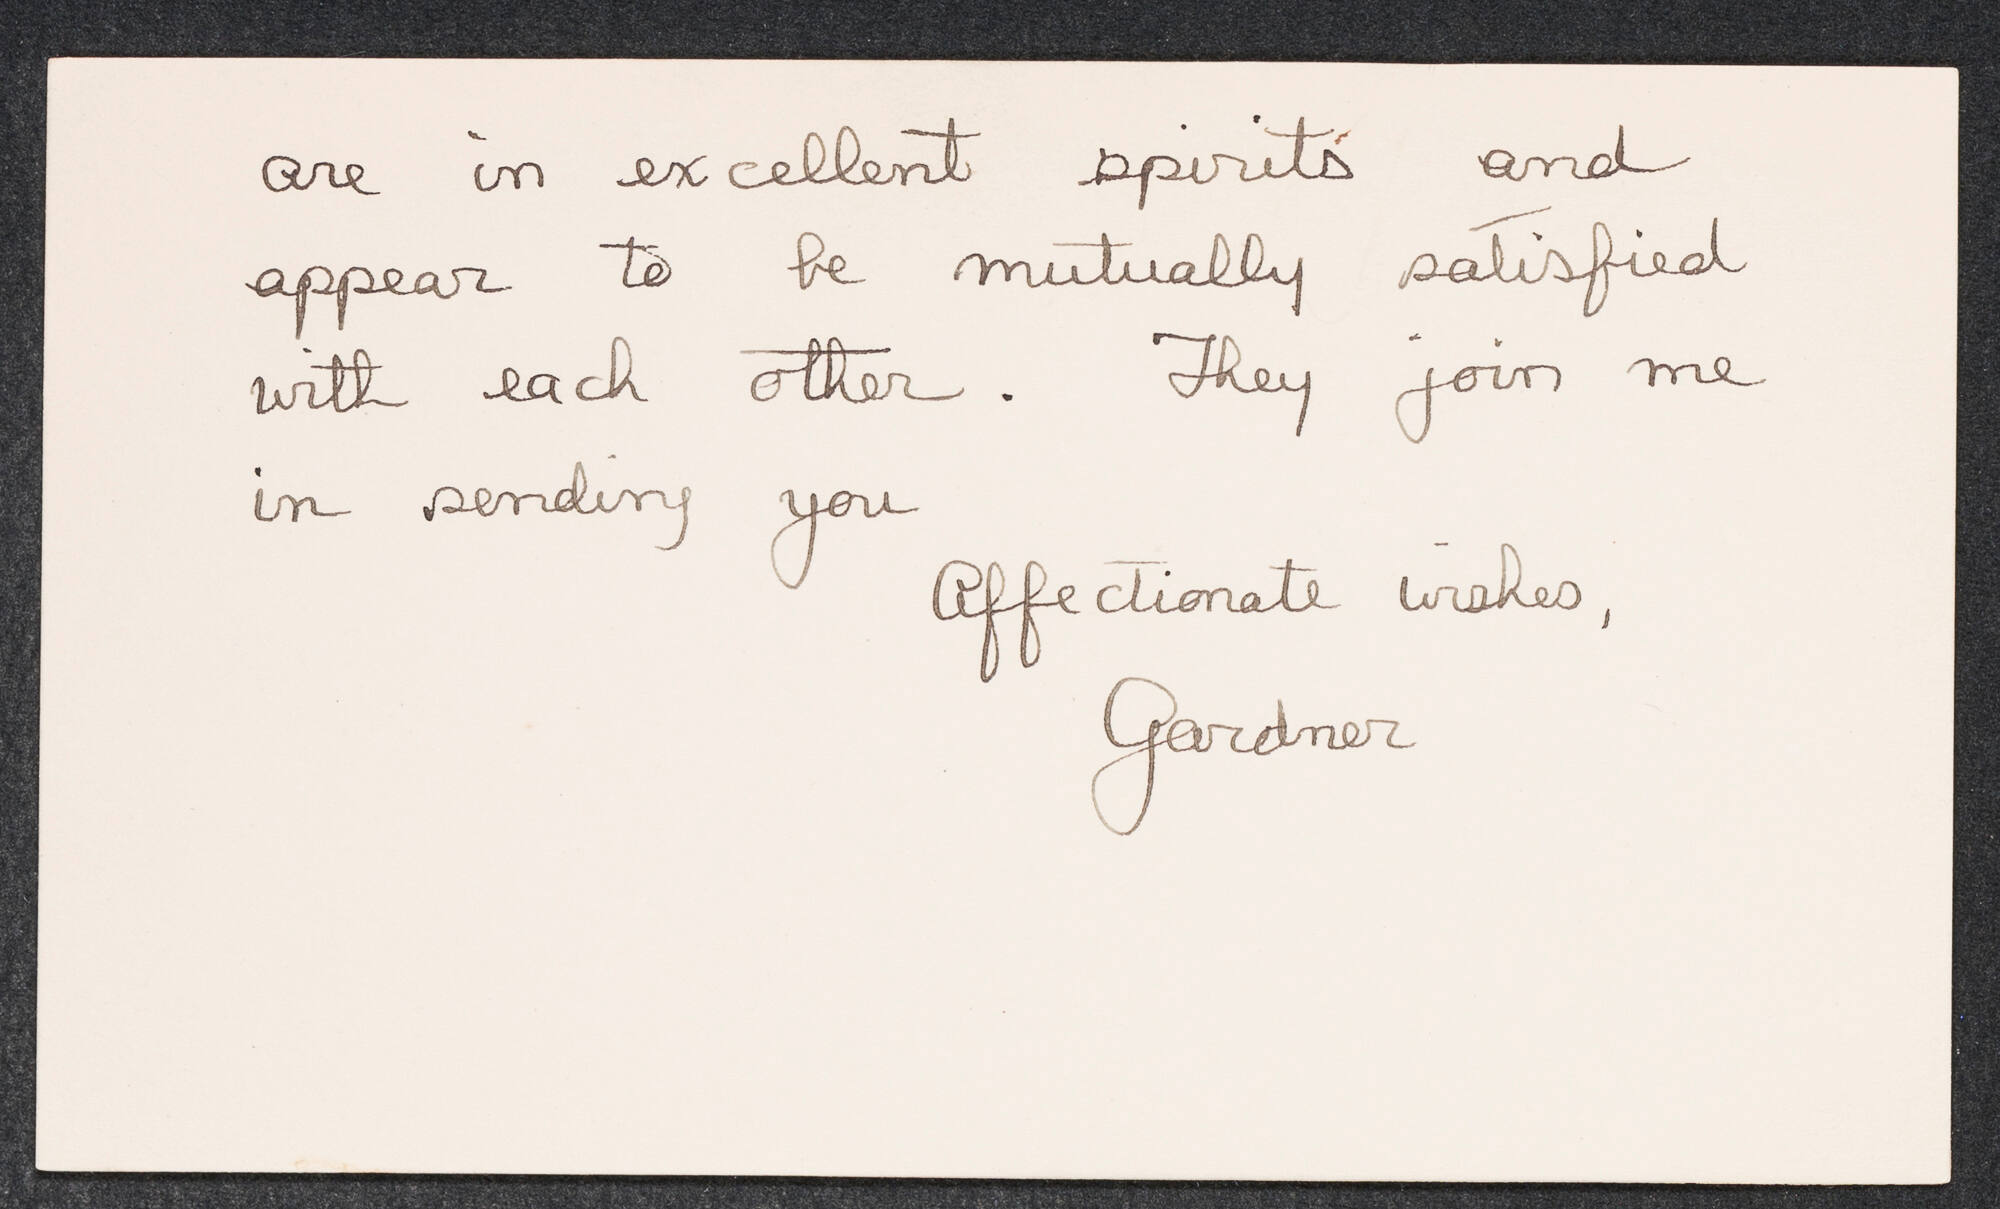 are in excellent spirits and
appear to be mutually satisfied
with each other. They join me
in sending you
Affectionate wishes,
Gardner